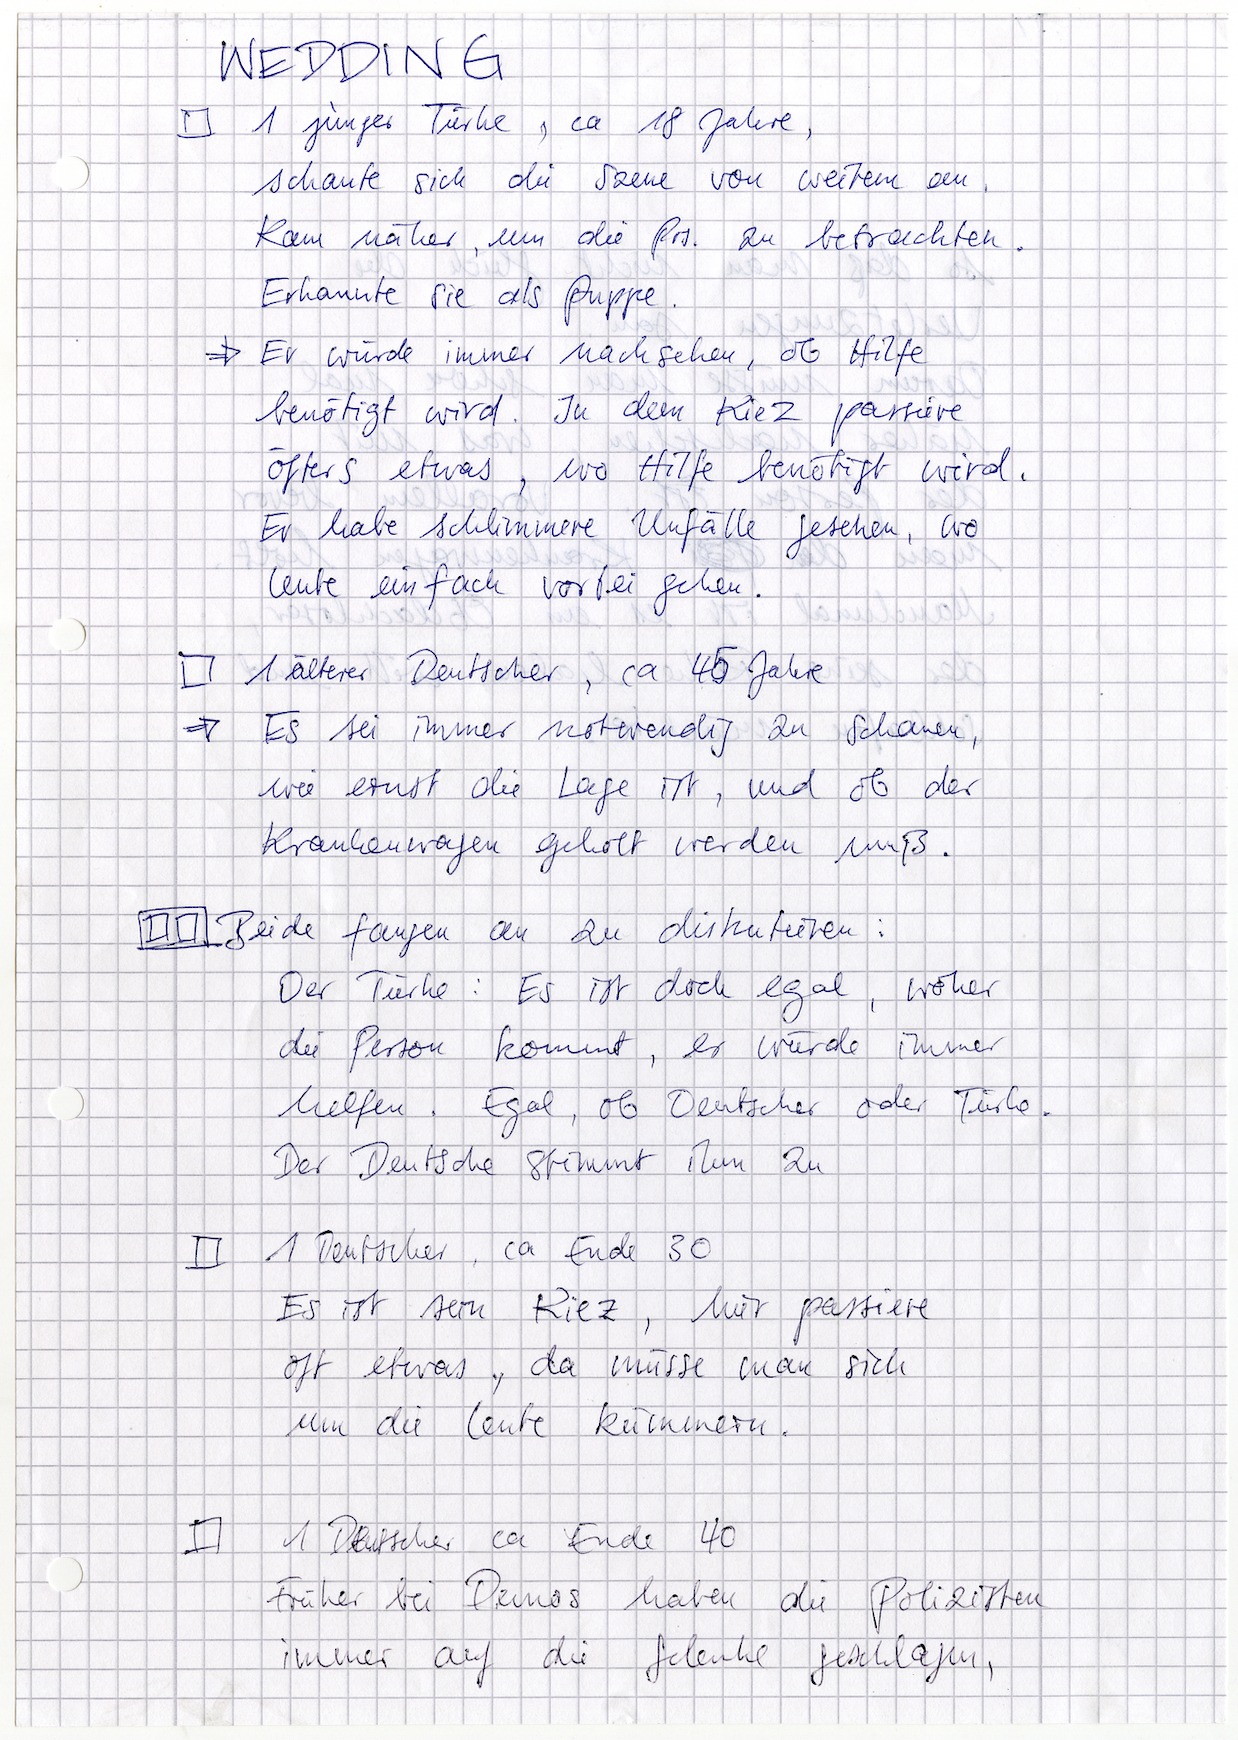 WEDDING
1 junger Türke, ca 18 Jahre,
schaute sich die Szene von weitem an.
Kam näher, um die Prs. zu betrachten.
Erkannte sie als Puppe.
⇒ Er würde immer nachsehen, ob Hilfe
benötigt wird. In dem Kiez passiere
öfters etwas, wo Hilfe benötigt wird.
Er habe schlimmere Unfälle gesehen, wo
Leute einfach vorbei gehen.
1 älterer Deutscher, ca 45 Jahre
⇒ Es sei immer notwendig zu schauen,
wie ernst die Lage ist, und ob der
Krankenwagen geholt werden muß.
Beide fangen an zu diskutieren:
Der Türke: Es ist doch egal, woher
die Person kommt, er würde immer
helfen. Egal, ob Deutscher oder Türke.
Der Deutsche stimmt ihm zu
1 Deutscher, ca Ende 30
Es ist sein Kiez, hier passiere
oft etwas, da müsse man sich
um die Leute kümmern.
1 Deutscher ca Ende 40
Früher bei Demos haben die Polizisten
immer auf die Gelenke geschlagen,